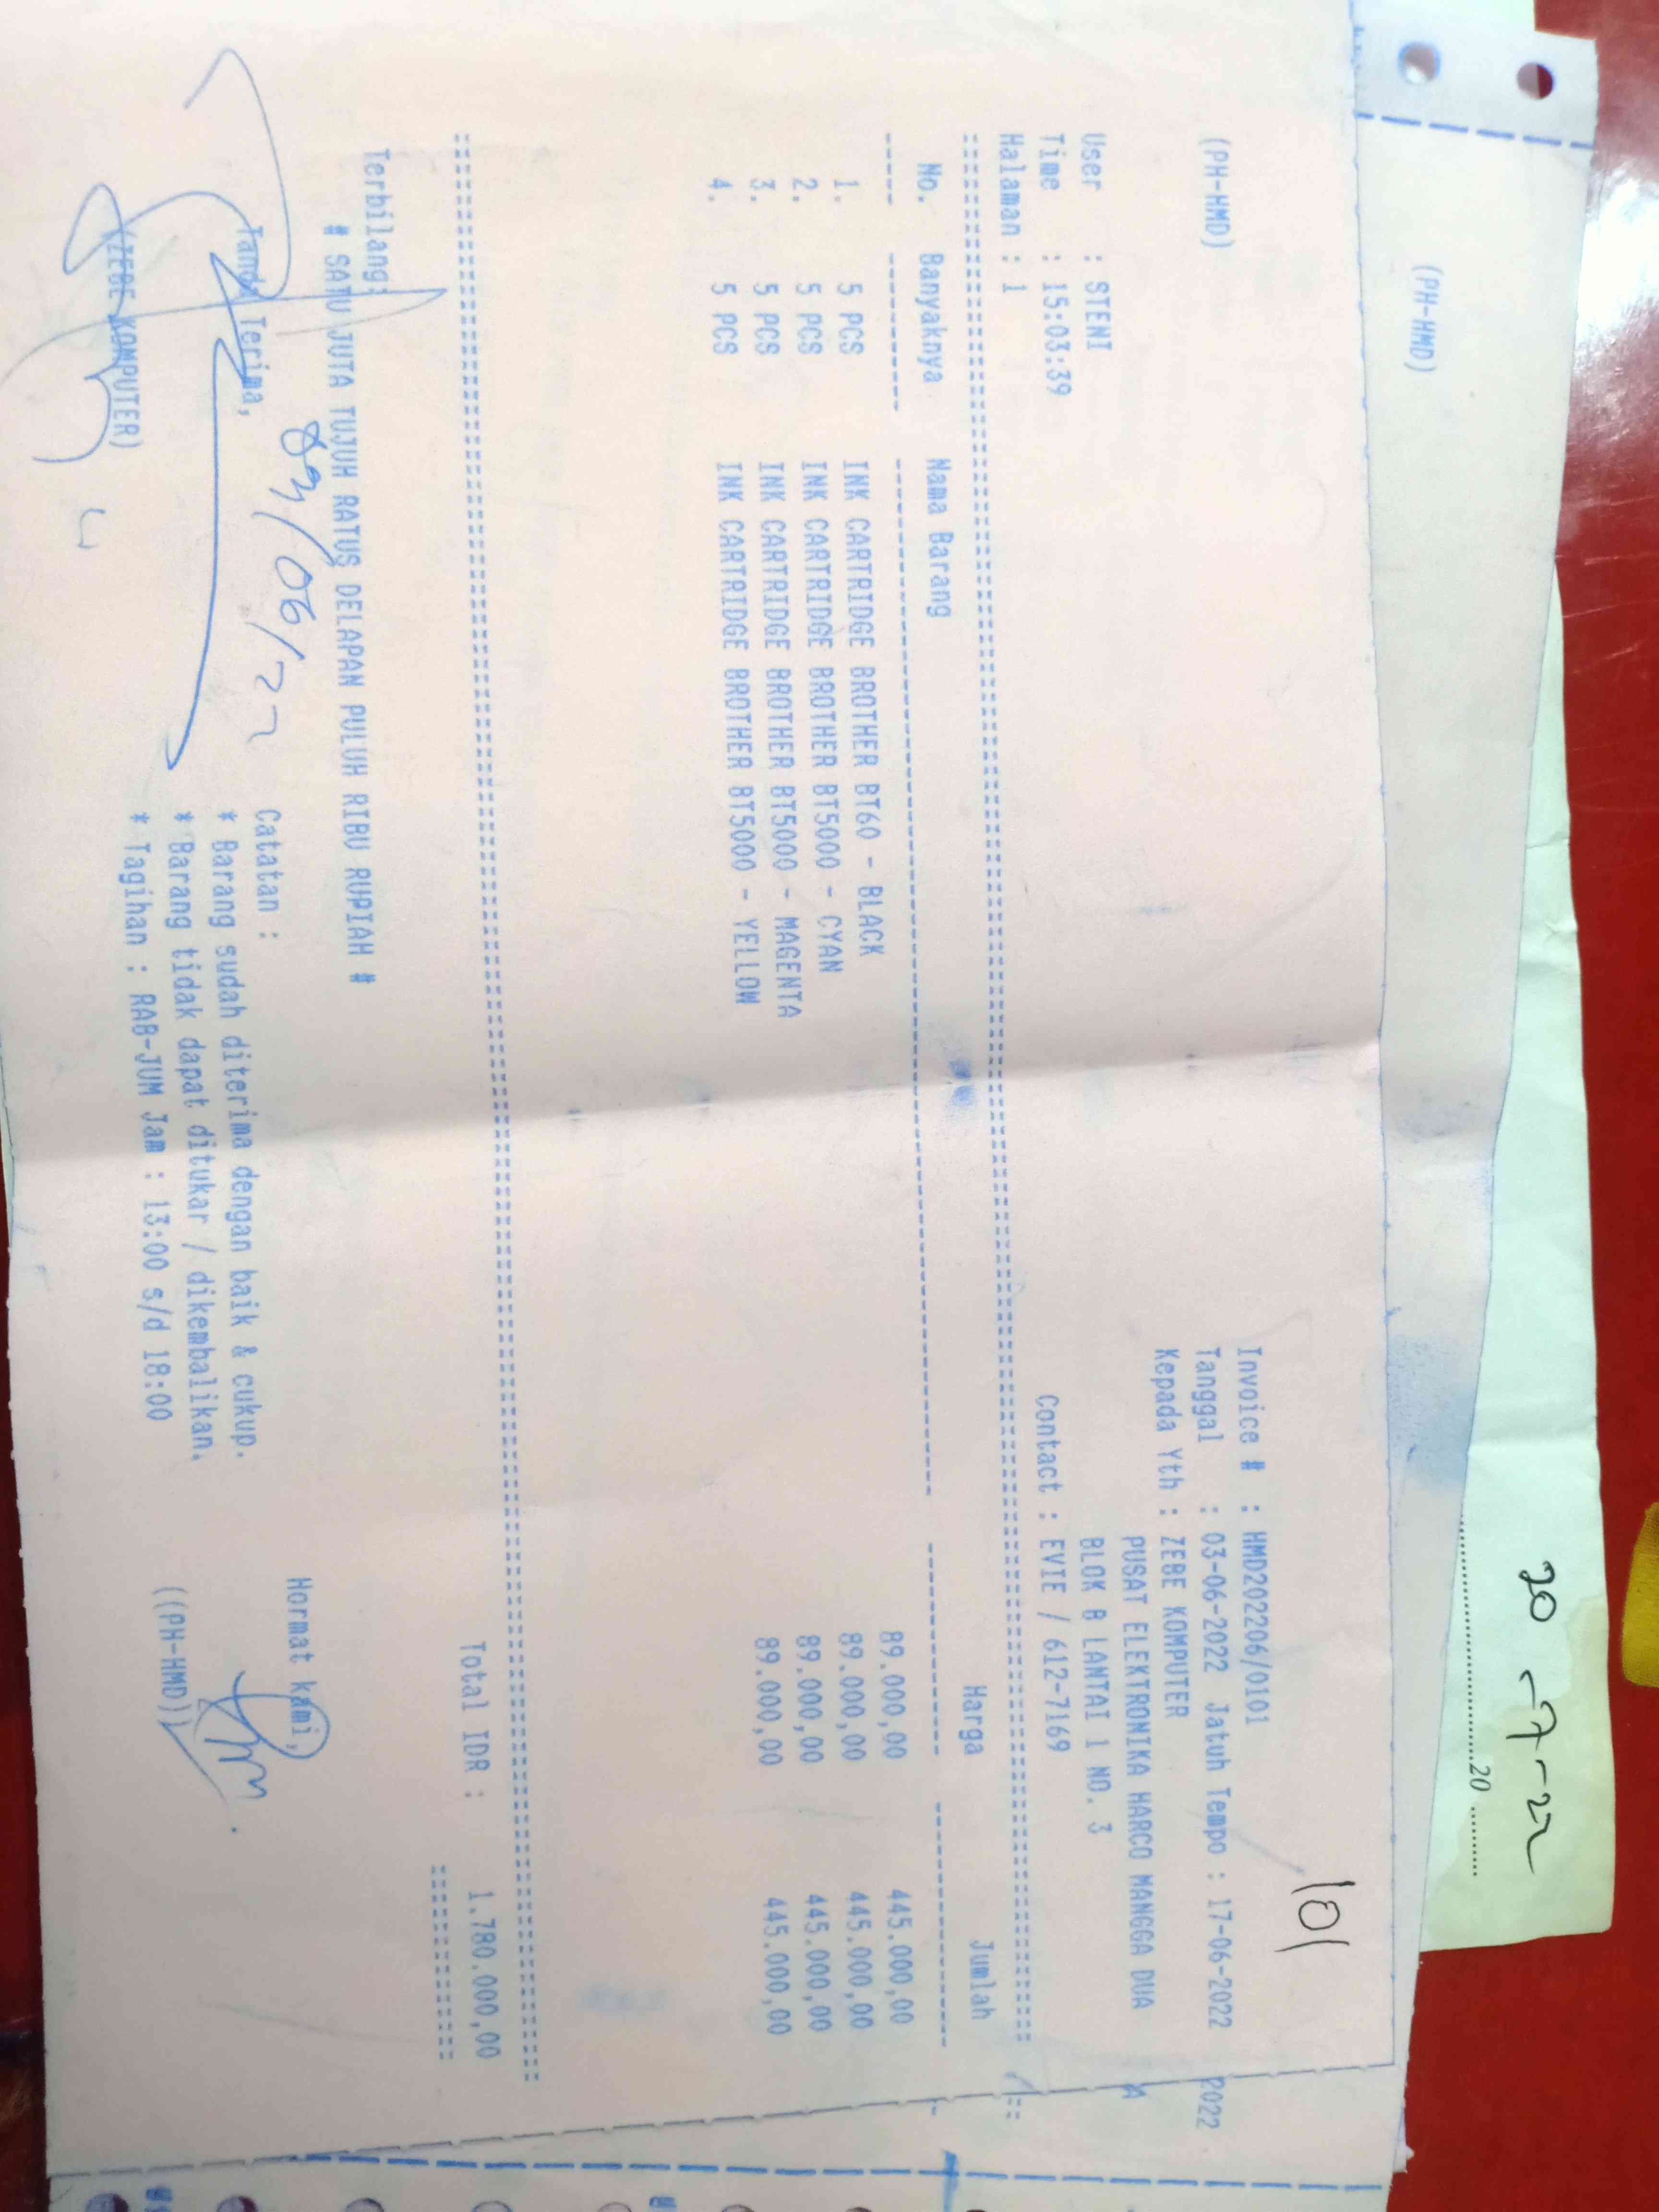 (PH-HMD)
20-7-22
20
101
(PH-HMD)
Invoice # : HMD202206/0101
Tanggal : 03-06-2022 Jatuh Tempo : 17-06-2022
2022
Kepada Yth : ZEBE KOMPUTER
PUSAT ELEKTRONIKA HARCO MANGGA DUA
A
User : STENI
BLOK B LANTAI 1 NO. 3
Time : 15:03:39
Contact : EVIE / 612-7169
Halaman : 1
No. Banyaknya Nama Barang Harga Jumlah
1. 5 PCS INK CARTRIDGE BROTHER BT60 - BLACK 89.000,00 445.000,00
2. 5 PCS INK CARTRIDGE BROTHER BT5000 - CYAN 89.000,00 445.000,00
3. 5 PCS INK CARTRIDGE BROTHER BT5000 - MAGENTA 89.000,00 445.000,00
4. 5 PCS INK CARTRIDGE BROTHER BT5000 - YELLOW 89.000,00 445.000,00
Total IDR : 1.780.000,00
Terbilang:
# SATU JUTA TUJUH RATUS DELAPAN PULUH RIBU RUPIAH #
03/06/22
Tanda Terima,
Catatan :
Hormat kami,
* Barang sudah diterima dengan baik & cukup.
* Barang tidak dapat ditukar / dikembalikan.
* Tagihan : RAB-JUM Jam : 13:00 s/d 18:00
(ZEBE KOMPUTER)
((PH-HMD))